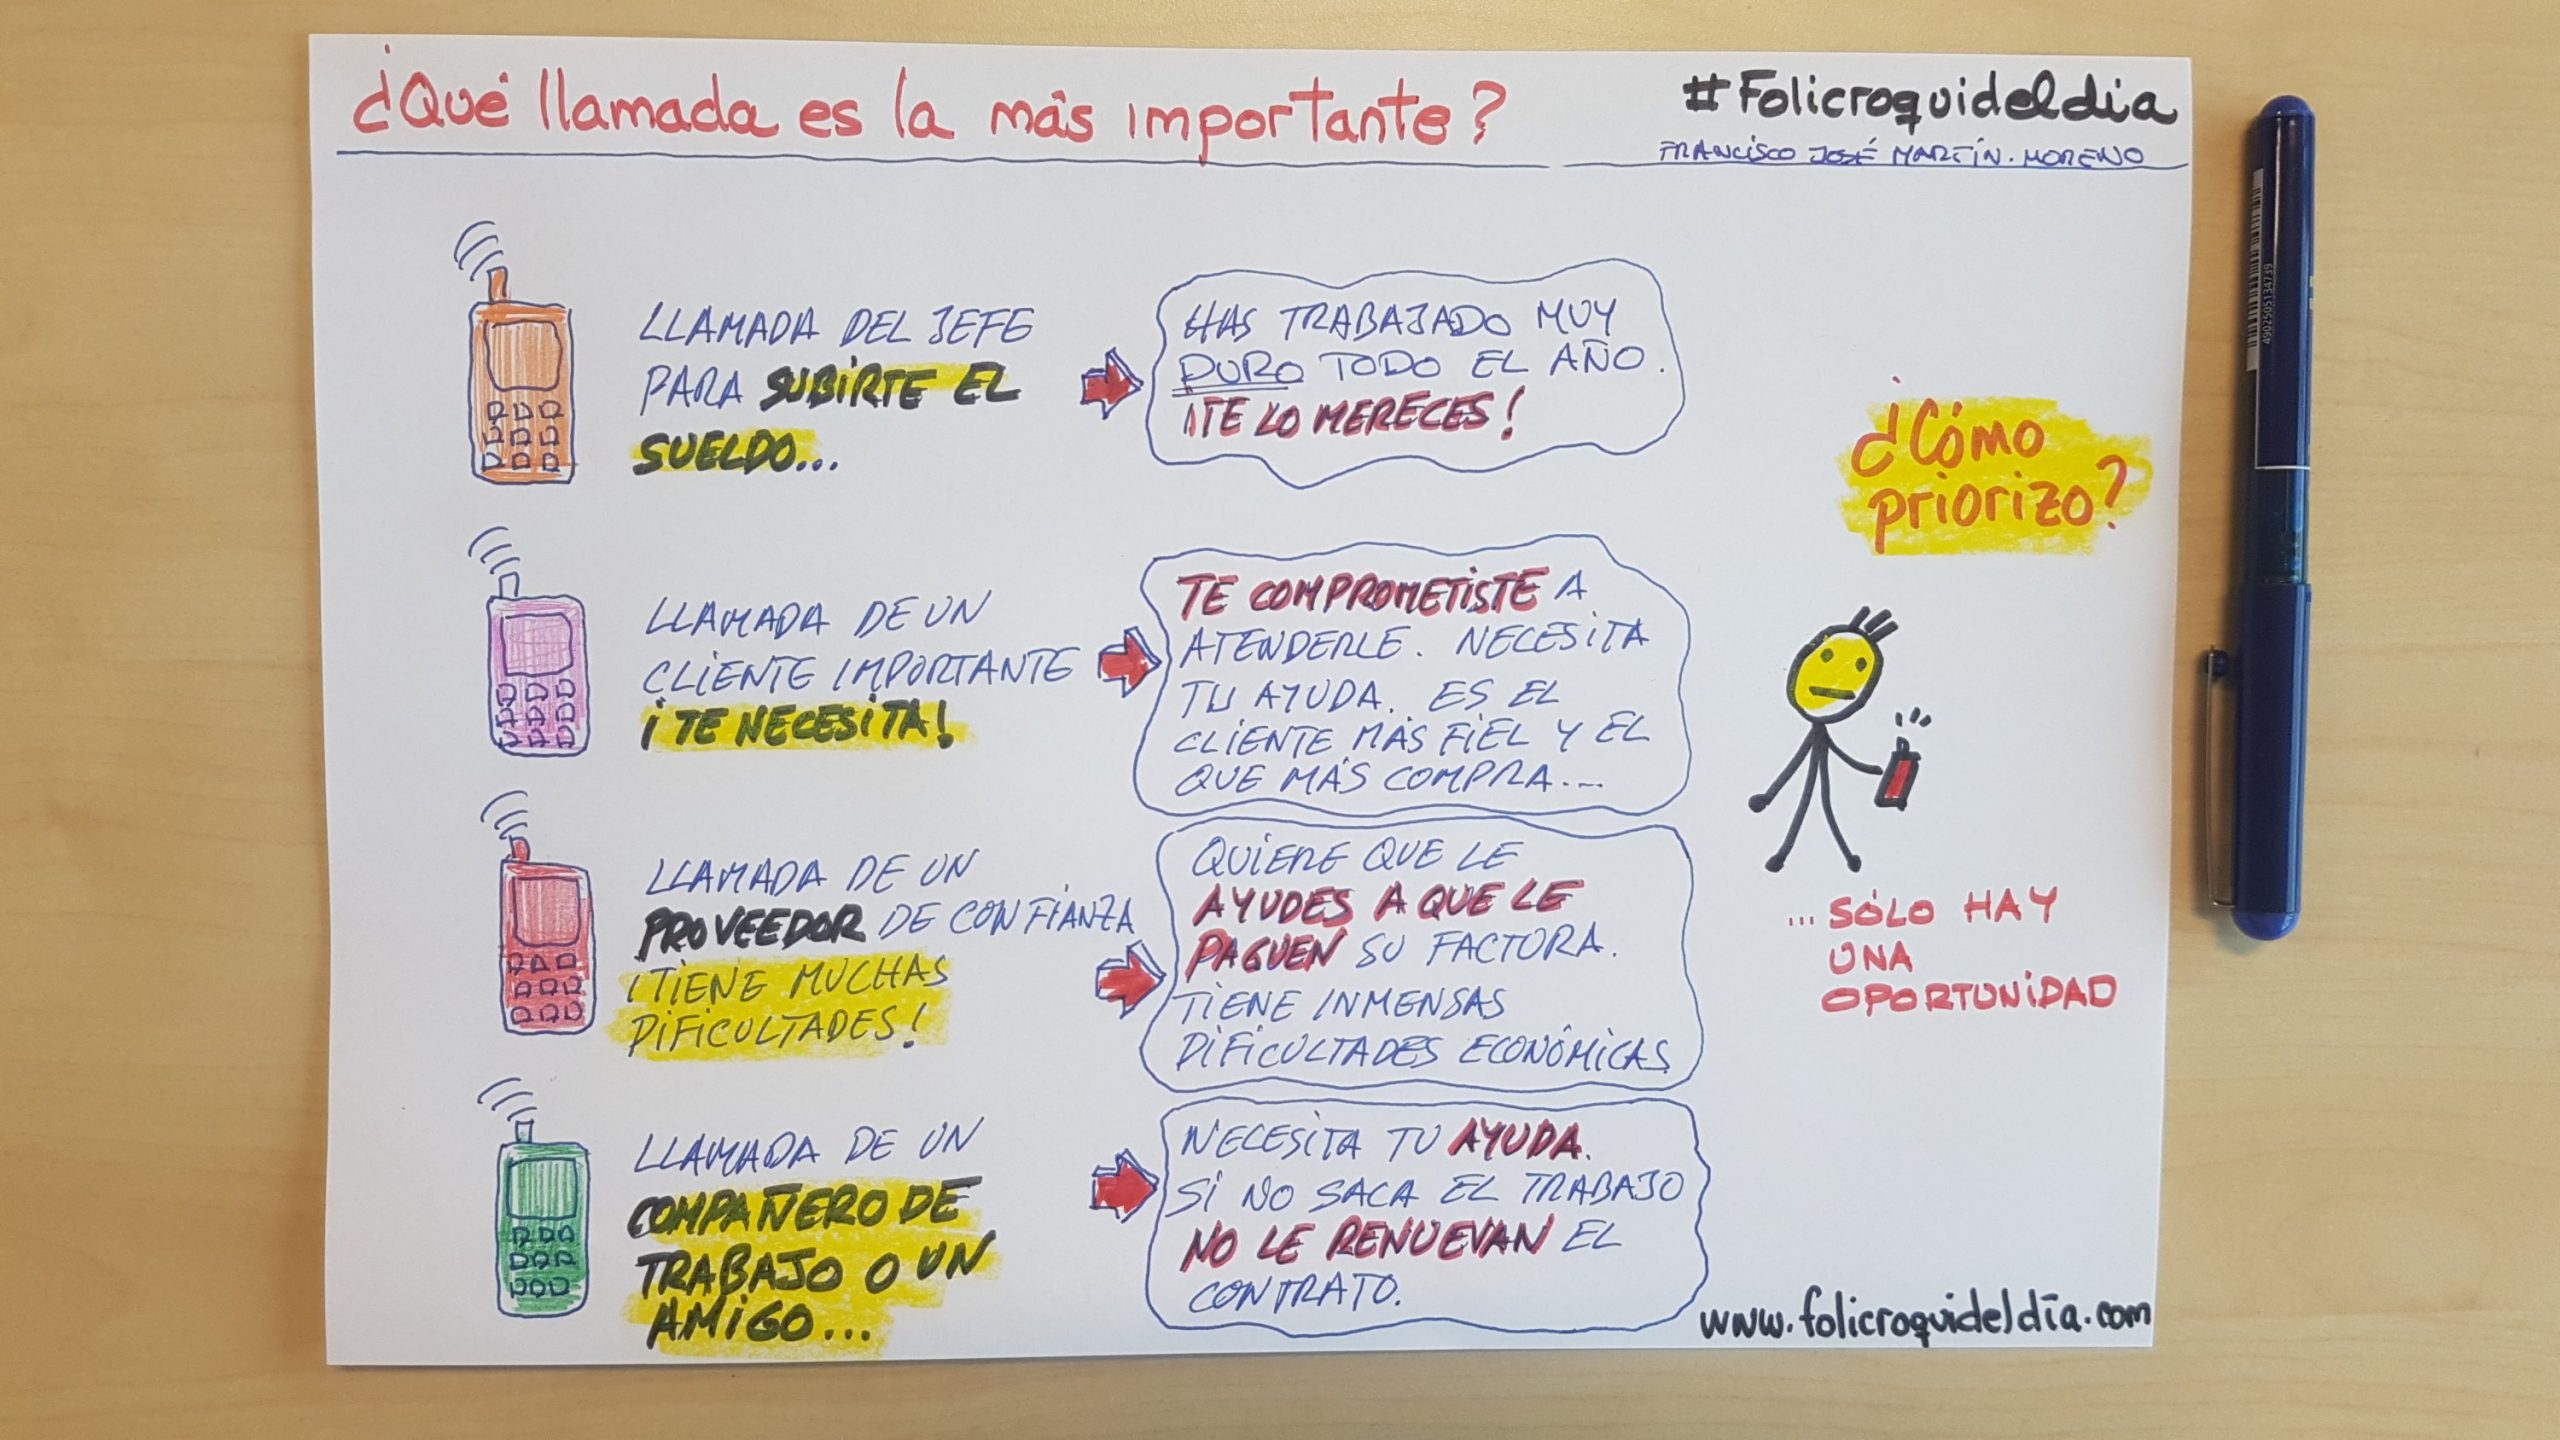 ¿Qué llamada es la más importante?
#Folicroquideldía
FRANCISCO JOSÉ MARTÍN-MORENO
LLAMADA DEL JEFE
PARA SUBIRTE EL
SUELDO...
HAS TRABAJADO MUY
DURO TODO EL AÑO.
¡TE LO MERECES!
LLAMADA DE UN
CLIENTE IMPORTANTE
¡TE NECESITA!
TE COMPROMETISTE A
ATENDERLE. NECESITA
TU AYUDA. ES EL
CLIENTE MÁS FIEL Y EL
QUE MÁS COMPRA...
LLAMADA DE UN
PROVEEDOR DE CONFIANZA
¡TIENE MUCHAS
DIFICULTADES!
QUIERE QUE LE
AYUDES A QUE LE
PAGUEN SU FACTURA.
TIENE INMENSAS
DIFICULTADES ECONÓMICAS
LLAMADA DE UN
COMPAÑERO DE
TRABAJO O UN
AMIGO...
NECESITA TU AYUDA.
SI NO SACA EL TRABAJO
NO LE RENUEVAN EL
CONTRATO.
¿Cómo
priorizo?
...SÓLO HAY
UNA
OPORTUNIDAD
www.folicroquideldía.com
4902505134739